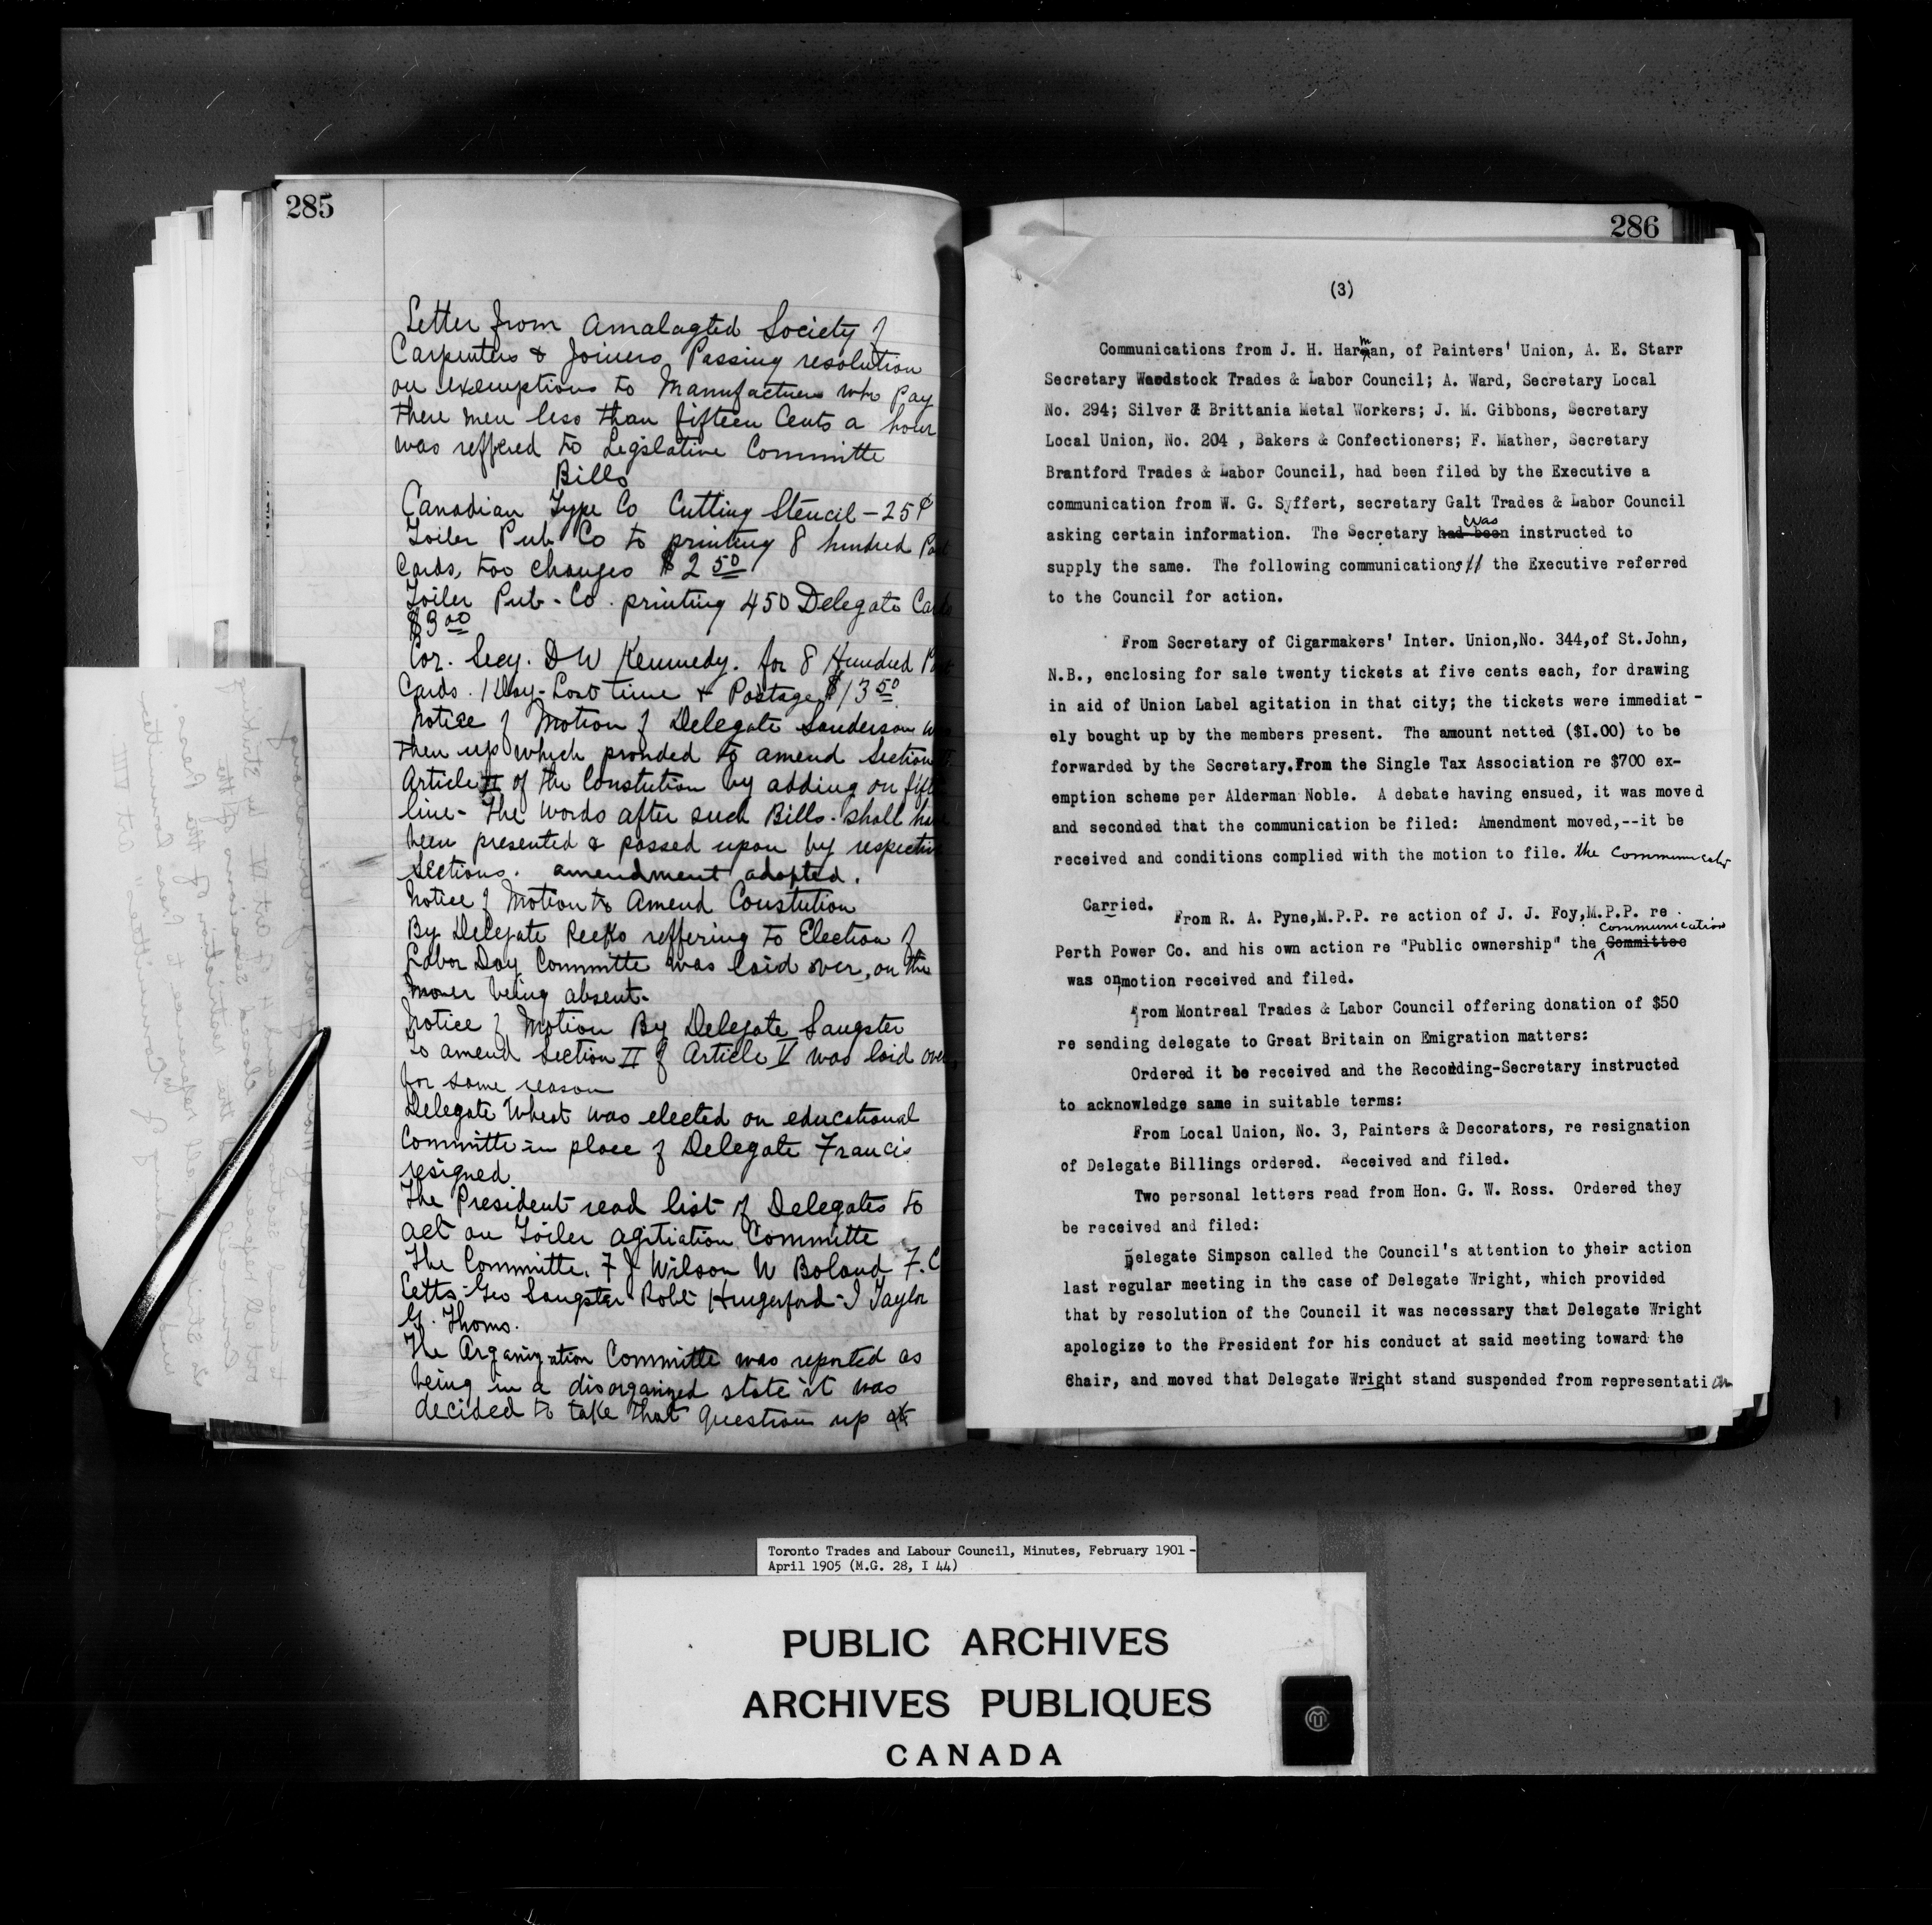 285
Letter from Amalagted Society of
Carpenters & Joiners Passing resolution
on exemptions to Manufactures who Pay
there men less than fifteen Cents a hour
was reffered to Legislative Committe
Bills
Canadian Type Co Cutting Stencil - 25¢
Toiler Pub Co to printing 8 hundred Post
Cards, too changes $2 50
Toiler Pub-Co. printing 450 Delegate Cards
$3 00
Cor. Secy. D W Kennedy. for 8 Hundred Post
Cards. 1 Day-Lost time & Postage $13 50
Notise of Motion of Delegate Sanderson was
then up which pronded to amend Section
Article II of the Constution by adding on fifth
line- the words after such Bills. shall have
been presented & passed upon by respective
sections. amendment adopted.
Notice of Motion to Amend Constution
By Delegate Reeks reffering to Election of
Labor Day Committe was laid over, on the
mover being absent-
Notice of Motion By Delegate Sangster
To amend Section II of Article V was laid over,
for same reason
Delegate Wheat was elected on educational
Committe in place of Delegate Francis
resigned
The President read list of Delegates to
act on Toiler agitiation Committe
The Committe. F J Wilson W Boland F.C
Letts- Geo Sangster Robt Hungerford- I Taylor
G. Thoms.
The Organization Committe was reported as
being in a disorganized state it was
decided to take that question up at
286
(3)
Communications from J. H. Harman, of Painters' Union, A. E. Starr
Secretary Woodstock Trades & Labor Council; A. Ward, Secretary Local
No. 294; Silver & Brittania Metal Workers; J. M. Gibbons, Secretary
Local Union, No. 204 , Bakers & Confectioners; F. Mather, Secretary
Brantford Trades & Labor Council, had been filed by the Executive a
communication from W. G. Syffert, secretary Galt Trades & Labor Council
was
asking certain information. The Secretary had been instructed to
supply the same. The following communications // the Executive referred
to the Council for action.
From Secretary of Cigarmakers' Inter. Union,No. 344,of St.John,
N.B., enclosing for sale twenty tickets at five cents each, for drawing
in aid of Union Label agitation in that city; the tickets were immediat-
ely bought up by the members present. The amount netted ($1.00) to be
forwarded by the Secretary.From the Single Tax Association re $700 ex-
emption scheme per Alderman Noble. A debate having ensued, it was moved
and seconded that the communication be filed: Amendment moved,--it be
received and conditions complied with the motion to file. the Communicatn
Carried.
From R. A. Pyne,M.P.P. re action of J. J. Foy,M.P.P. re
communication
Perth Power Co. and his own action re "Public ownership" the Committee
was on motion received and filed.
From Montreal Trades & Labor Council offering donation of $50
re sending delegate to Great Britain on Emigration matters:
Ordered it be received and the Recording-Secretary instructed
to acknowledge same in suitable terms:
From Local Union, No. 3, Painters & Decorators, re resignation
of Delegate Billings ordered. Received and filed.
Two personal letters read from Hon. G. W. Ross. Ordered they
be received and filed:
Delegate Simpson called the Council's attention to their action
last regular meeting in the case of Delegate Wright, which provided
that by resolution of the Council it was necessary that Delegate Wright
apologize to the President for his conduct at said meeting toward the
Chair, and moved that Delegate Wright stand suspended from representation
Toronto Trades and Labour Council, Minutes, February 1901 -
April 1905 (M.G. 28, I 44)
PUBLIC ARCHIVES
ARCHIVES PUBLIQUES
CANADA